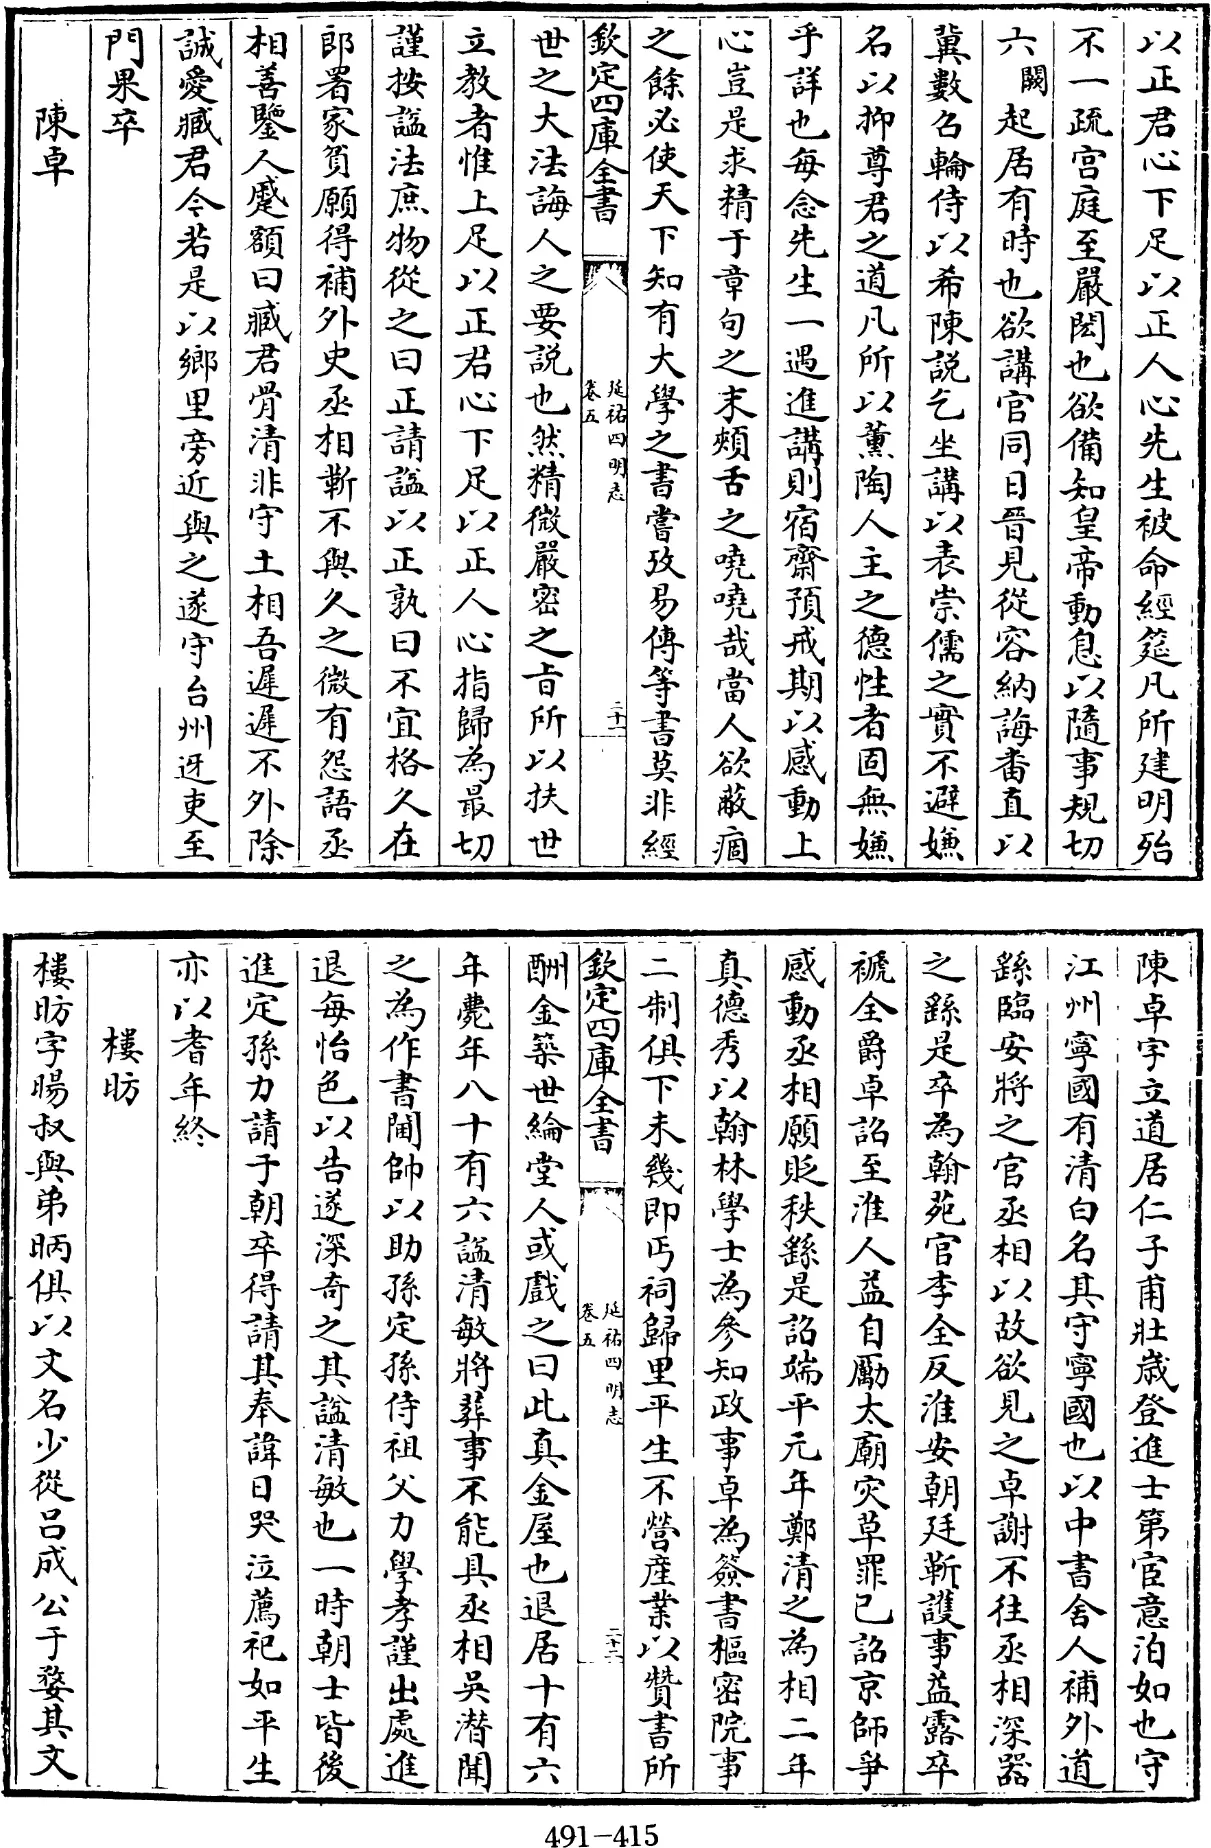 以正君心下足以正人心先生被命經筵凡所建明殆
不一疏宫庭至嚴閟也欲備知皇帝動息以隨事規切
六闕起居有時也欲講官同日晉見從容納誨畨直以
冀數召輪侍以希陳説乞坐講以表崇儒之實不避嫌
名以抑尊君之道凡所以薫陶人主之德性者固無嫌
乎詳也每念先生一遇進講則宿齋預戒期以感動上
心豈是求精于章句之末頰舌之嘵嘵哉當人欲蔽痼
之餘必使天下知有大學之書嘗攷易傳等書莫非經
欽定四庫全書
延祐四明志
卷五
二十一
世之大法誨人之要説也然精微嚴密之㫖所以扶世
立教者惟上足以正君心下足以正人心指歸為最切
謹按諡法庶物從之曰正請諡以正孰曰不宜格久在
郎署家貧願得補外史丞相靳不與久之微有怨語丞
相善鑒人蹙額曰臧君骨清非守土相吾遲遲不外除
誠愛臧君今若是以鄉里旁近與之遂守台州迓吏至
門果卒
陳卓
陳卓字立道居仁子甫壯歳登進士第宦意泊如也守
江州寧國有清白名其守寧國也以中書舍人補外道
繇臨安將之官丞相以故欲見之卓謝不往丞相深器
之繇是卒為翰苑官李全反淮安朝廷靳護事益露卒
褫全爵卓詔至淮人益自勵太廟灾草罪已詔京師爭
感動丞相願貶秩繇是詔端平元年鄭清之為相二年
真德秀以翰林學士為參知政事卓為簽書樞密院事
二制俱下未幾即丐祠歸里平生不營産業以贊書所
欽定四庫全書
延祐四明志
卷五
二十二
酬金築世綸堂人或戲之曰此真金屋也退居十有六
年薨年八十有六諡清敏將葬事不能具丞相吳潛聞
之為作書閫帥以助孫定孫侍祖父力學孝謹出處進
退每怡色以告遂深奇之其諡清敏也一時朝士皆後
進定孫力請于朝卒得請其奉諱日哭泣薦祀如平生
亦以耆年終
樓昉
樓昉字暘叔與弟昞俱以文名少從吕成公于婺其文
491-415